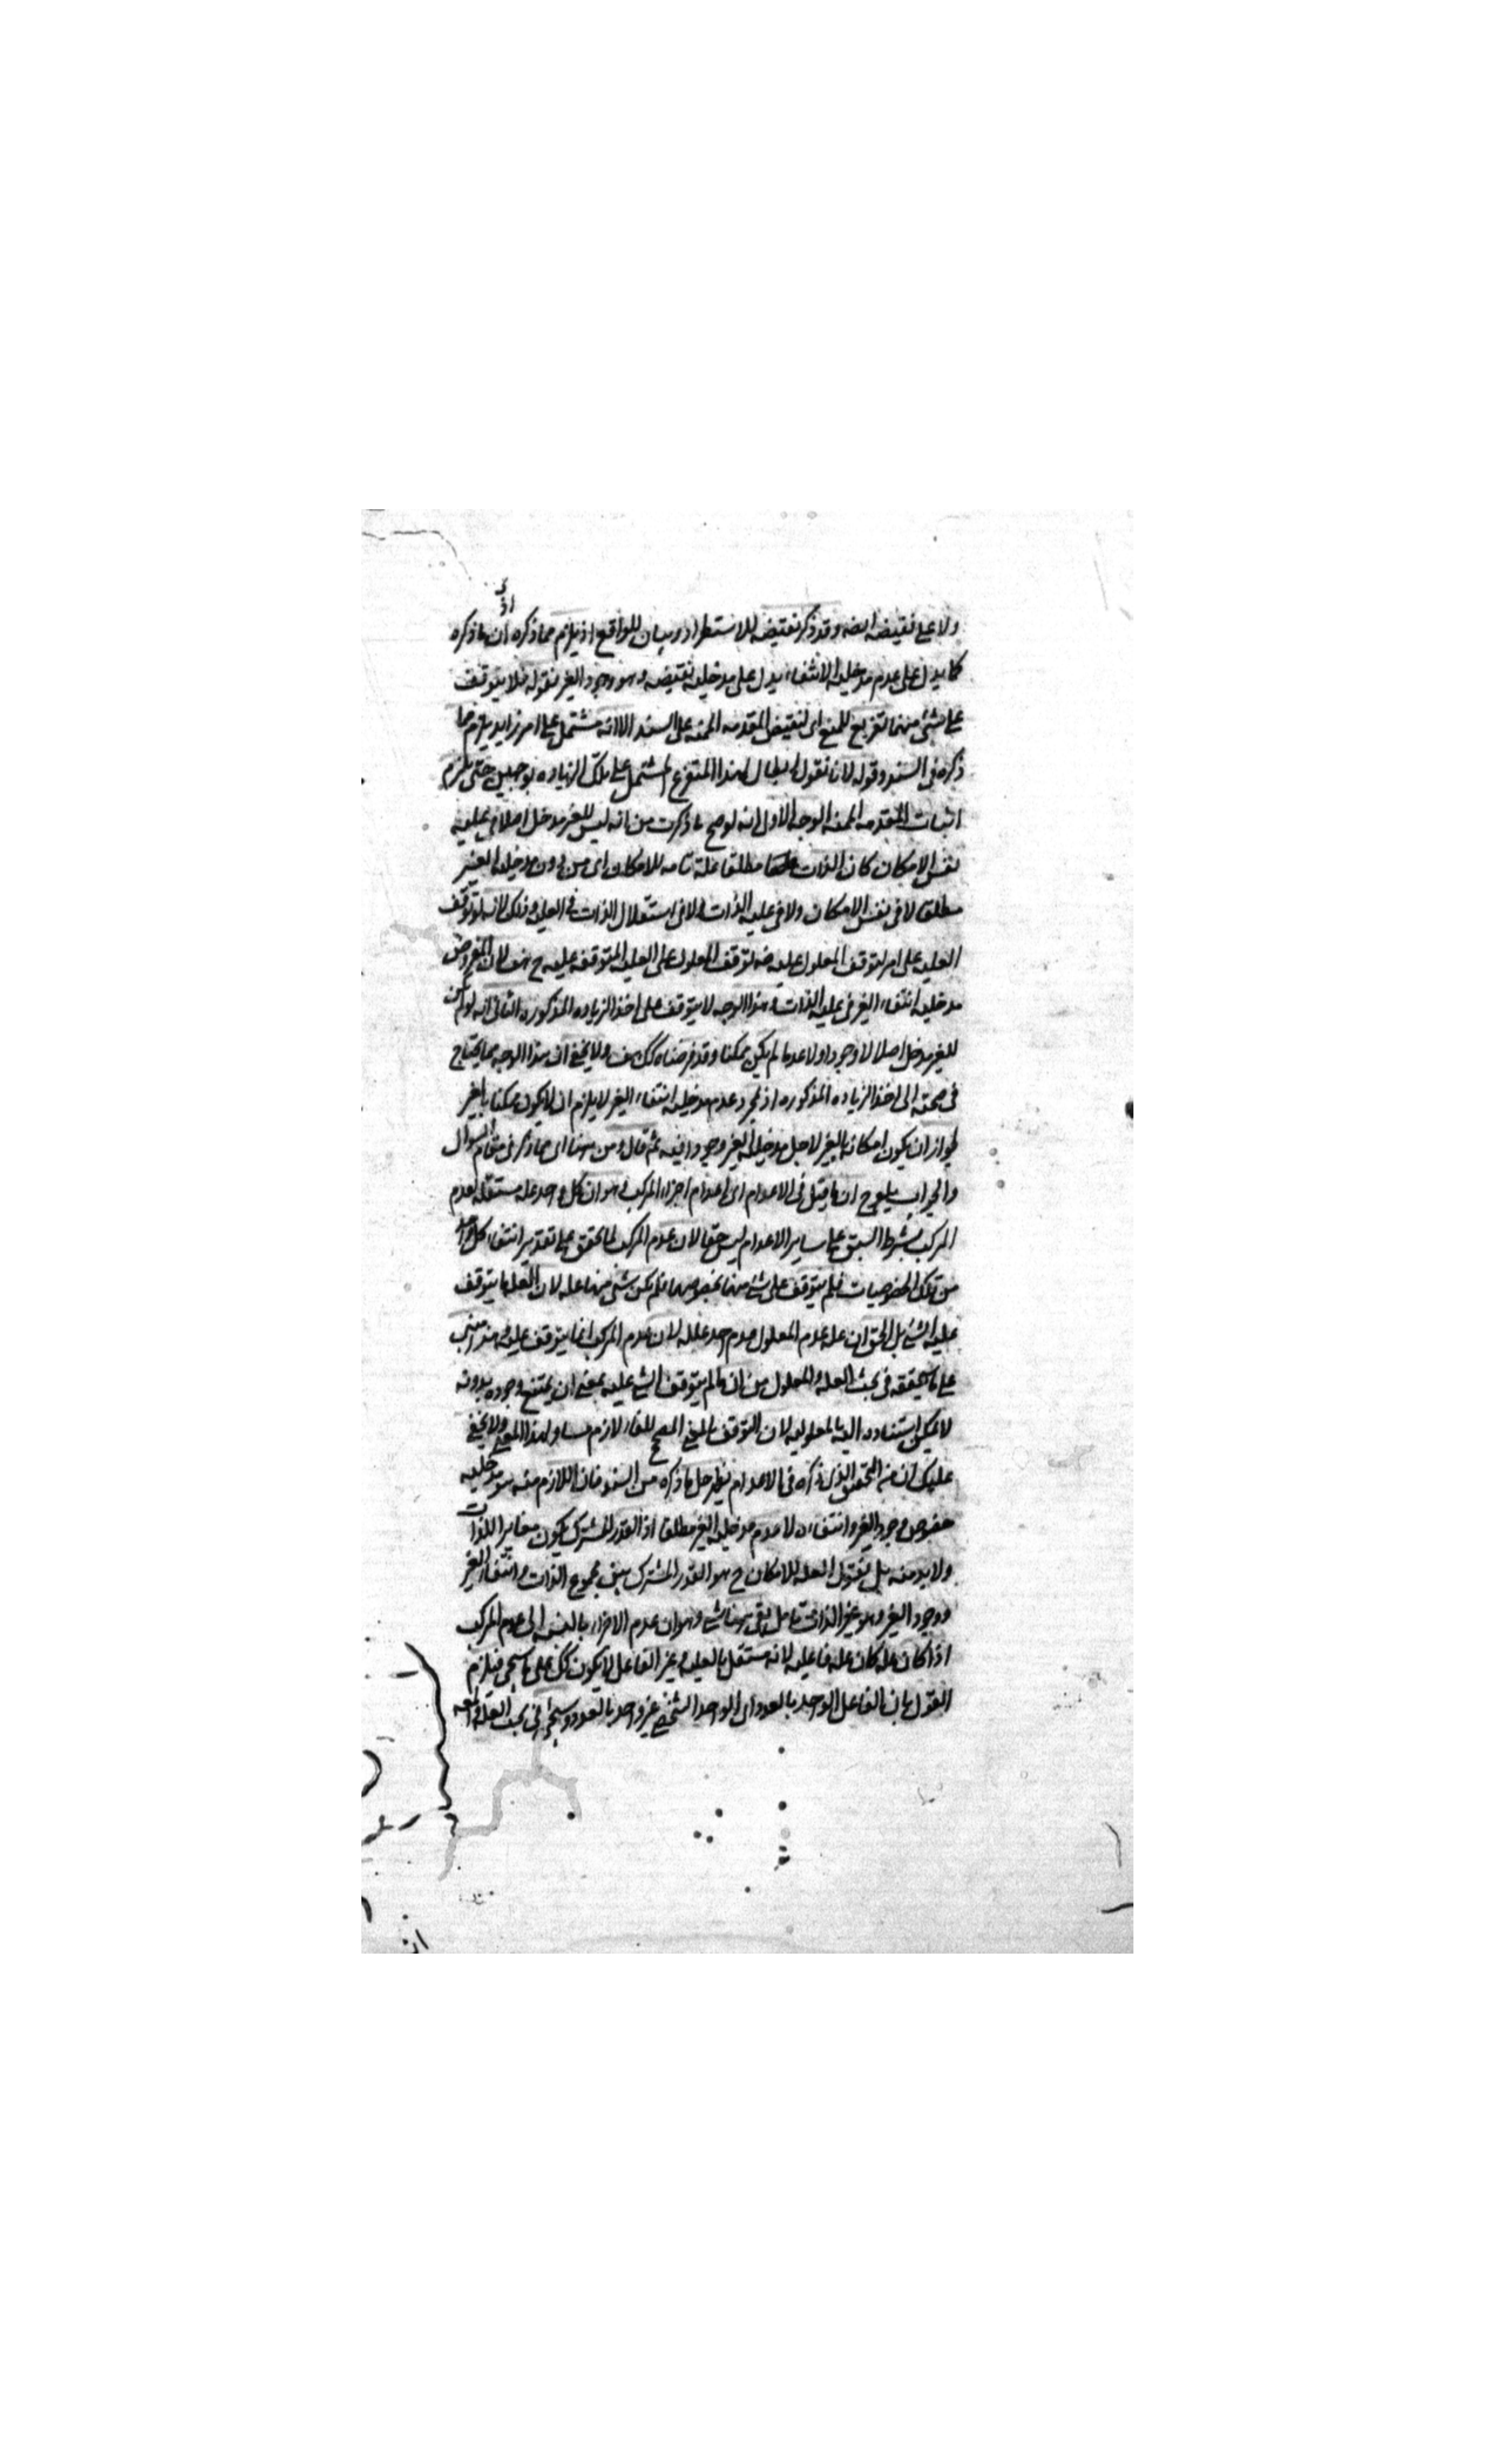 ولا على نقيضه ايضه وقد ذكر نقيضه للاستطراد وبيان للواقع اذ يلزم مما ذكره ان ما ذكره
كما يدل على عدم مدخلية الانتفاء يدل على مدخلية نقيضه وهو وجود الغير فقوله فلا يتوقف
على شئ منهما تفريع للمنع اى لنقيض المقدمه الممنه على السند الا انه مشتمل على امر زايد يلزم مما
ذكره فى السند وقوله لانا نقول ابطال لهذا المتفرع المشتمل على تلك الزياده بوجهين حتى يلزم
اثبات المقدمه الممنه الوجه الاول انه لو صح ما ذكرت من انه ليس للغير مدخل اصلا فى علية
نفس الامكان كان الذات مطلقا علة تامه للامكان اى من دون مدخلية الغير
مطلقا لا فى نفس الامكان ولا فى علية الذات ولا فى استقلال الذات فى العلية وذلك لانه لو توقف
العلية على امر لتوقف المعلول عليه ضه لتوقف المعلول على العلية المتوقفه عليه ح هف لان المفروض
مدخلية انتفاء الغير فى علية الذات وهذا الوجه لا يتوقف على اخذ الزياده المذكوره الثانى انه لو لم يكن
للغير مدخل اصلا لا وجودا ولا عدما لم يكن ممكنا وقد فرضناه كك هف ولا يخفى ان هذا الوجه مما يحتاج
فى صحته الى اخذ الزياده المذكوره اذ بمجرد عدم مدخلية انتفاء الغير لا يلزم ان لا يكون ممكنا بالغير
لجواز ان يكون امكانه بالغير لاجل مدخلية الغير وجودا فيه ثم قال ومن هنا اى مما ذكر فى مقام السوال
والجواب يلوح ان ما قيل فى الاعدام اى اعدام اجزاء المركب وهو ان كل واحد علة مستقلة لعدم
المركب بشرط السبق على ساير الاعدام ليس حقا لان عدم المركب لما تحقق على تقدير انتفاء كل واحد
من تلك الخصوصيات فلم يتوقف على شئ منها بخصوصها فلم يكن شئ منها علة لان العلة ما يتوقف
عليه الشئ بل الحق ان علة عدم المعلول عدم احد علله لان عدم المركب انما يتوقف عليه وهذا مبنى
على ما سيحققه فى بحث العلة والمعلول من ان ما لم يتوقف الشئ عليه بمعنى ان يمتنع وجوده بدونه
لا يمكن استناده اليه بالمعلولية لان التوقف بالمعنى المصحح للفاء لازم مساو لهذا المعنى ولا يخفى
عليك ان من التحقيق الذى ذكره فى الاعدام يظهر حل ما ذكره من السند فان اللازم منه هو مدخلية
خصوص وجود الغير وانتفاءه لا عدم مدخلية الغير مطلقا اذ القدر المشترك يكون مغايرا للذات
ولا بد منه بل نقول العلة للامكان ح هو القدر المشترك بين مجموع الذات وانتفاء الغير
ووجود الغير وهو غير الذات تامل بقى هنا شئ وهو ان عدم الاجزاء بالنسبه الى عدم المركب
اذا كان علة كان علة فاعلية لانه مستقل بالعلية وغير الفاعل لا يكون كك على ما سيجى فيلزم
القول بان الفاعل الواحد بالعدد اى الواحد الشخصى غير واحد بالعدد وسيجئ فى بحث العلة